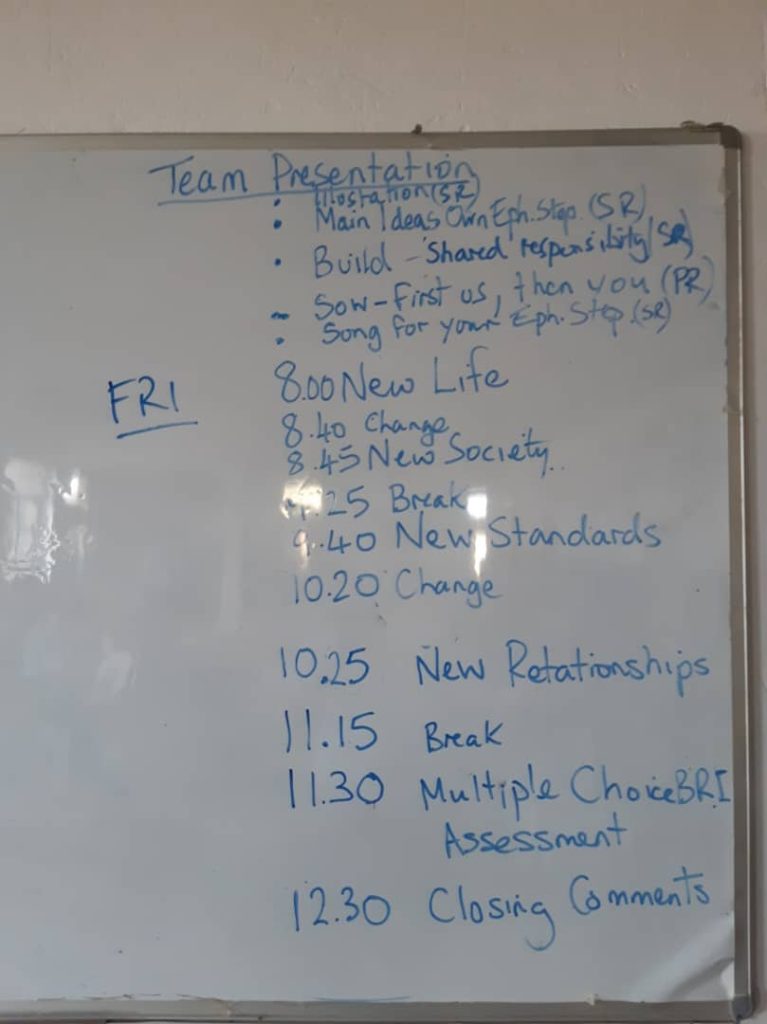 Team Presentation
• Illostration (SR)
• Main Ideas Own Eph. Step (SR)
• Build - Shared responsibility (SR)
- Sow - First us, then you (PR)
• Song for your Eph. Step. (SR)
FRI
8.00 New Life
8.40 Change
8.45 New Society..
9.25 Break
9.40 New Standards
10.20 Change
10.25 New Relationships
11.15 Break
11.30 Multiple Choice BRI
Assessment
12.30 Closing Comments